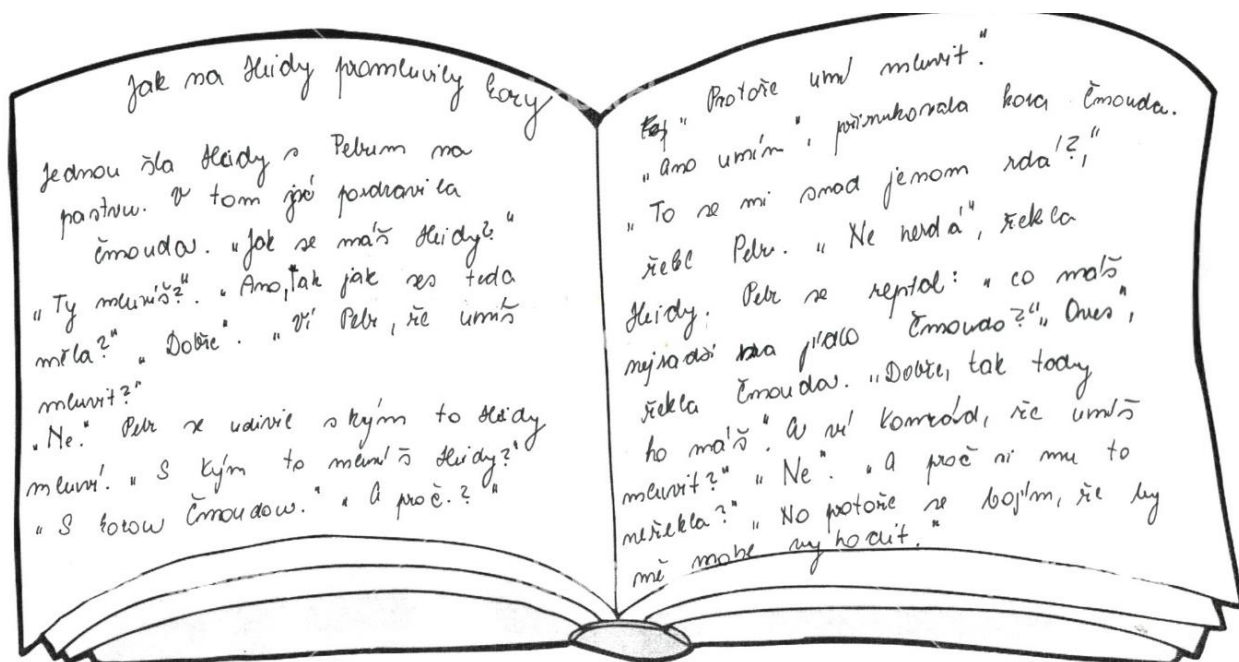 Jak na Heidy promluvily kozy
Jednou šla Heidy s Petrem na
pastvu. V tom jí pozdravila
čmouda. „Jak se máš Heidy?“
„Ty mluvíš?“. „Ano, tak jak ses teda
měla?“ „Dobře“. „Ví Petr, že umíš
mluvit?“
„Ne.“ Petr se udivil s kým to Heidy
mluví. „S kým to mluvíš Heidy?“
„S kozou Čmoudou.“ „A proč.?“
„Protože umí mluvit.“
„Ano umím“, přinukovala koza Čmouda.
„To se mi snad jenom zdá!?,“
řekl Petr. „Ne nezdá“, řekla
Heidy. Petr se zeptal: „co máš
nejradši jídlo Čmoudo?“ „Oves“,
řekla Čmouda. „Dobře, tak tady
ho máš“. A ví Komrád, že umíš
mluvit?“ „Ne“. „A proč si mu to
neřekla?“ „No protože se bojím, že by
mě mohl vyhodit.“